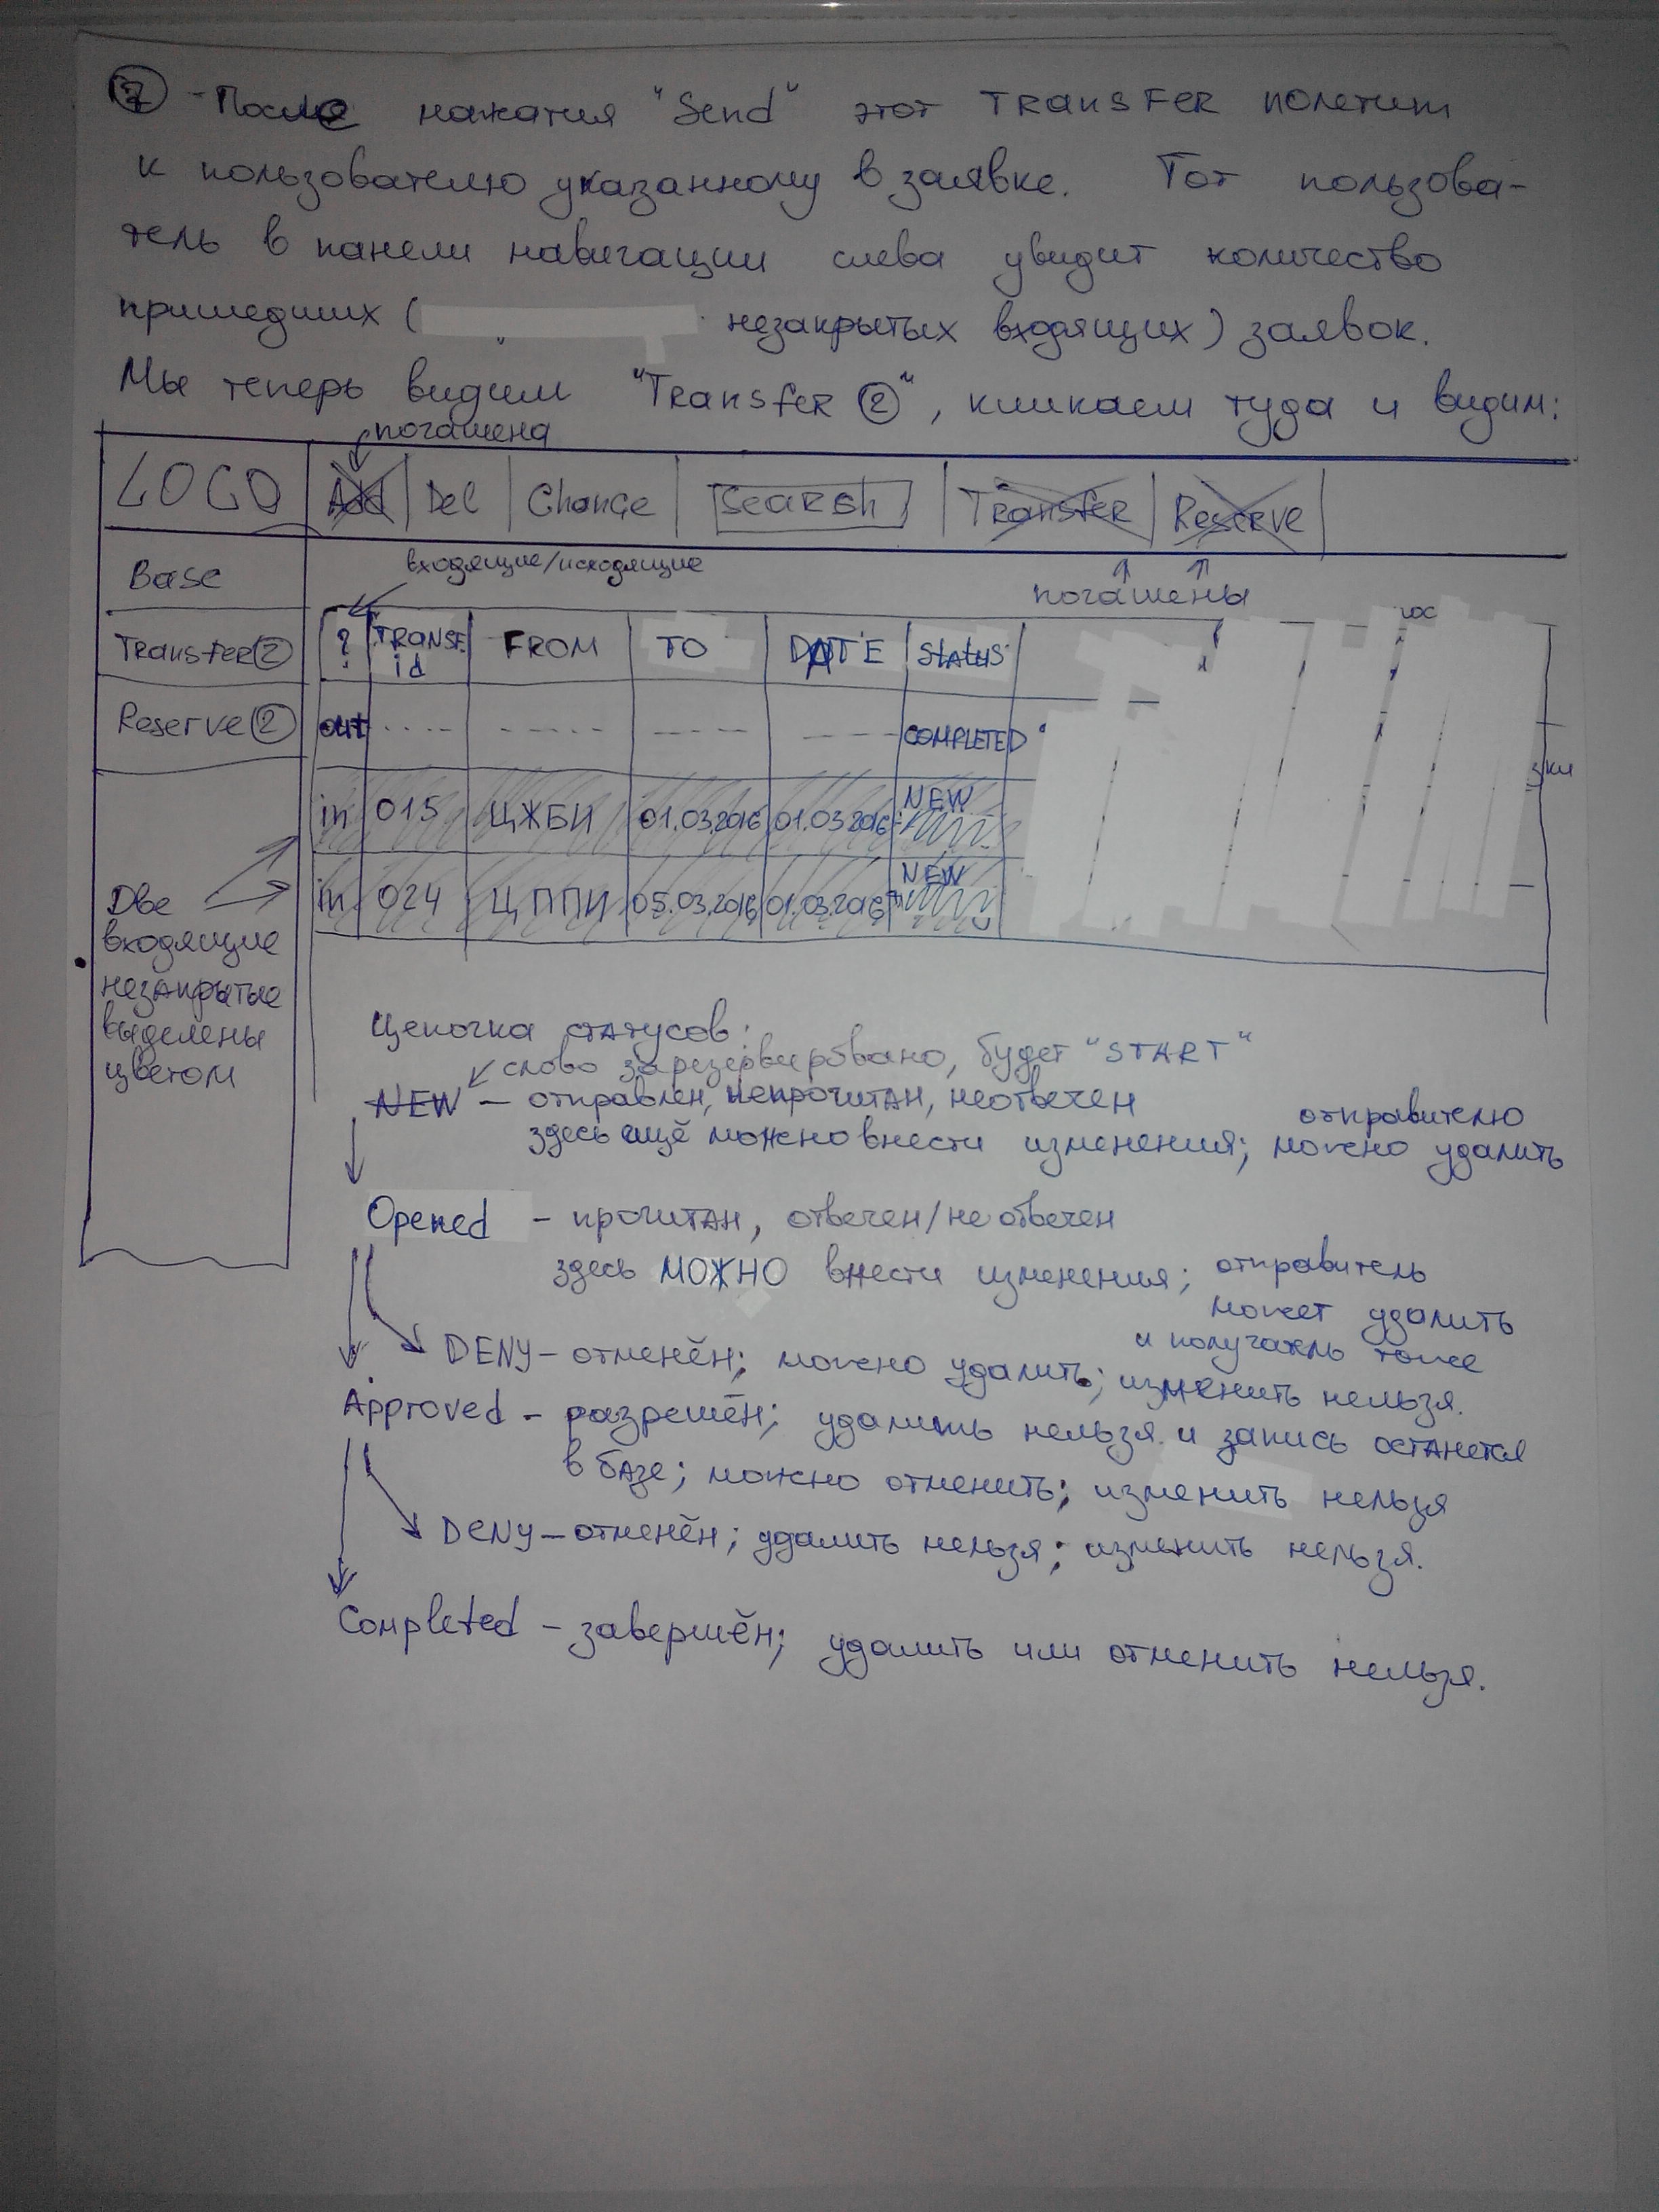 ⑦ - После нажатия "Send" этот TRANSFER полетит
к пользователю указанному в заявке. Тот пользова-
тель в панели навигации слева увидит количество
пришедших ( незакрытых входящих) заявок.
Мы теперь видим "TRANSfeR ②", кликаем туда и видим:
погашена
LOGO Add Del Change SEARSh Transfer Reserve
Base
входящие/исходящие
погашены
Transfer② ? TRANSF. id FROM TO DATE STATUS
Reserve② out COMPLETED
in 015 ЦЖБИ 01.03.2016 01.03.2016 NEW
in 024 ЦППИ 05.03.2016 01.03.2016 NEW
Две
входящие
незакрытые
выделены
цветом
Цепочка статусов:
слово зарезервировано, будет "START"
NEW – отправлен, непрочитан, неотвечен
здесь ещё можно внести изменения; отправителю
можно удалить
Opened - прочитан, отвечен/не отвечен
здесь МОЖНО внести изменения; отправитель
может удалить
и получатель тоже
DENY – отменён; можно удалить; изменить нельзя.
Approved - разрешён; удалить нельзя и запись останется
в базе; можно отменить; изменить нельзя
DENY – отменён; удалить нельзя; изменить нельзя.
Completed – завершён; удалить или отменить нельзя.